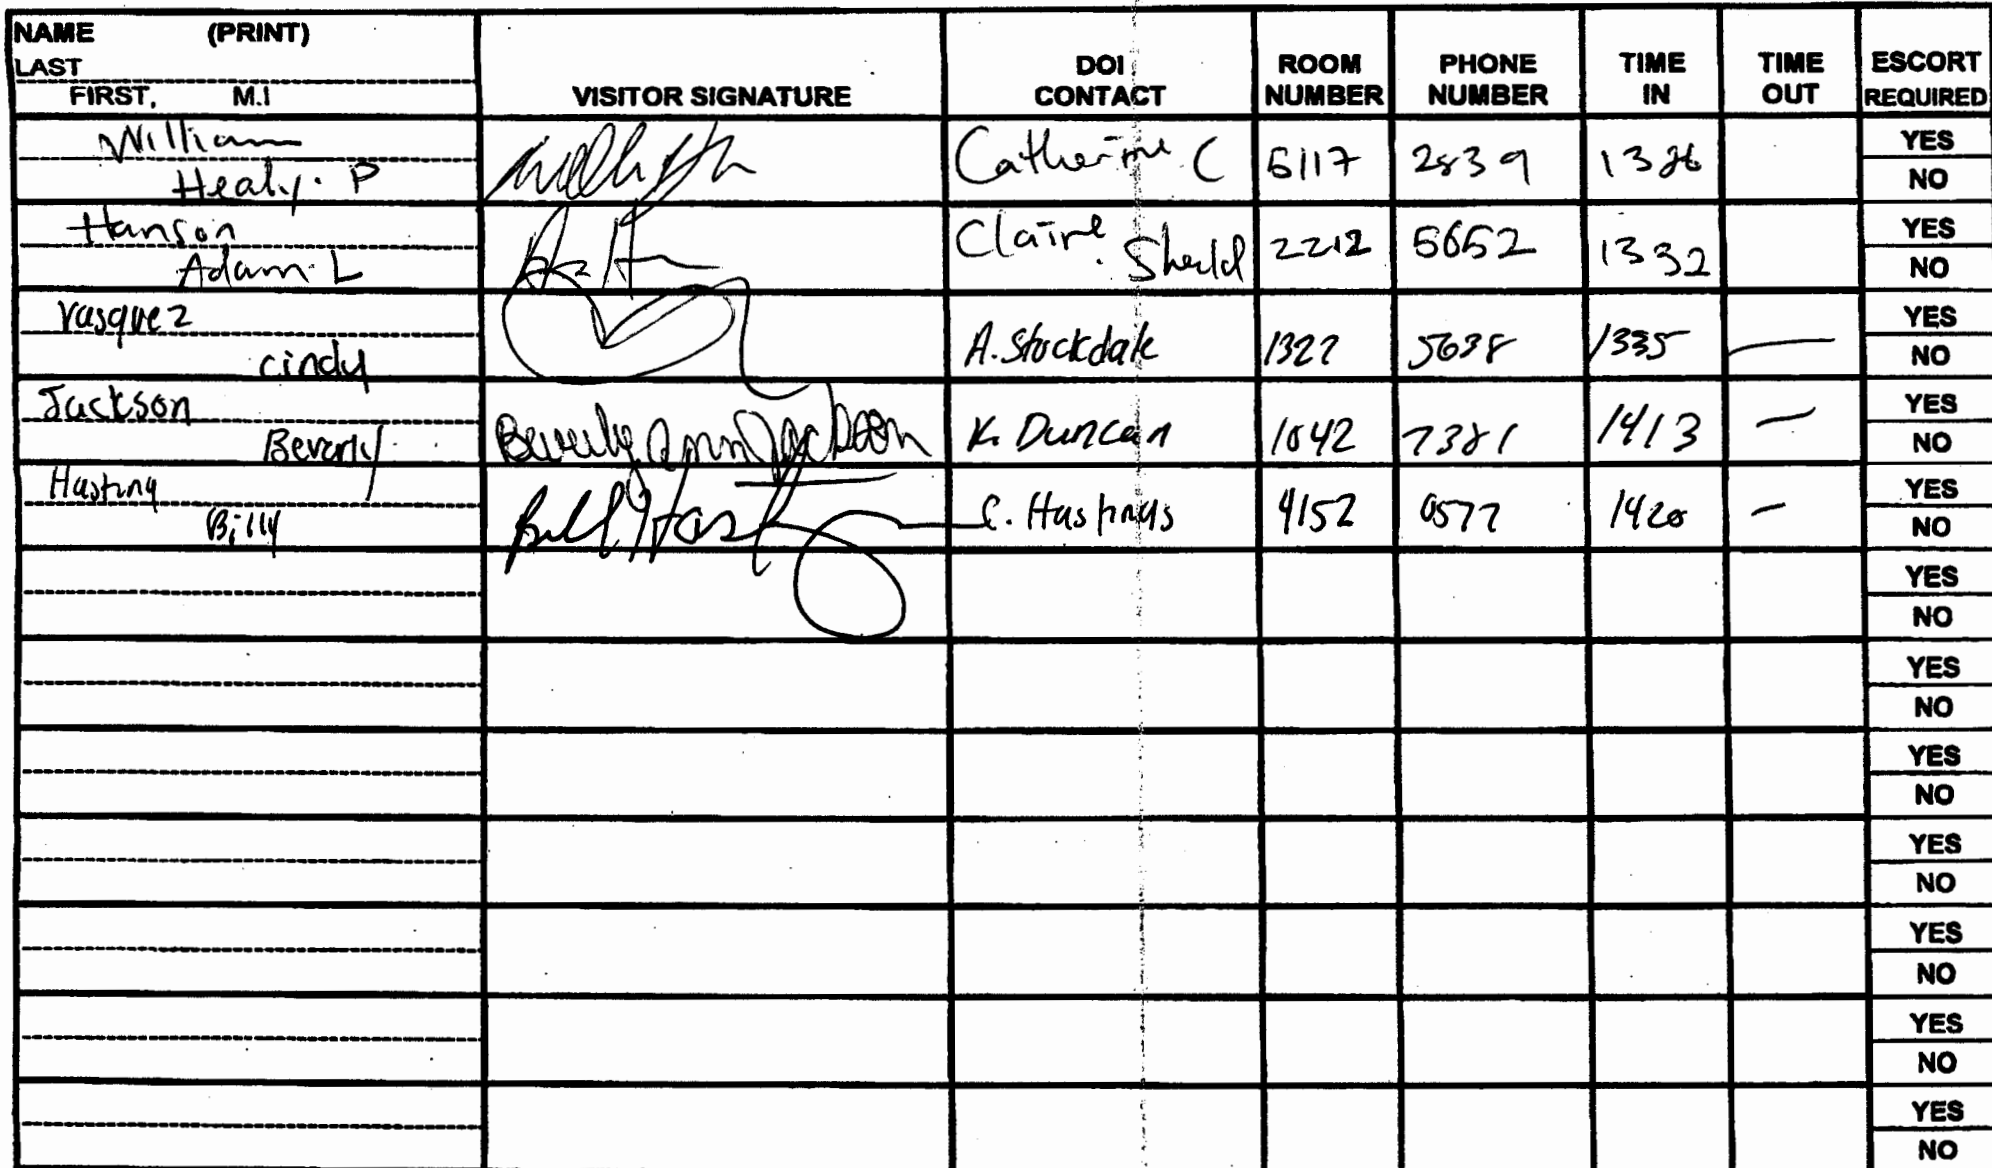 NAME (PRINT)
LAST
FIRST, M.I
VISITOR SIGNATURE
DOI CONTACT
ROOM NUMBER
PHONE NUMBER
TIME IN
TIME OUT
ESCORT REQUIRED
William
Healy. P
Catherine C 5117 2839 1326
YES
NO
Hanson
Adam L
Claire Sheild 2212 5652 1332
YES
NO
Vasquez
cindy
A. Stockdale 1322 5638 1335 —
YES
NO
Jackson
Beverly
Beverly Ann Jackson K. Duncan 1042 7381 1413 —
YES
NO
Hasting
Billy
Bill Hast C. Hastings 4152 0577 1420 —
YES
NO
YES
NO
YES
NO
YES
NO
YES
NO
YES
NO
YES
NO
YES
NO